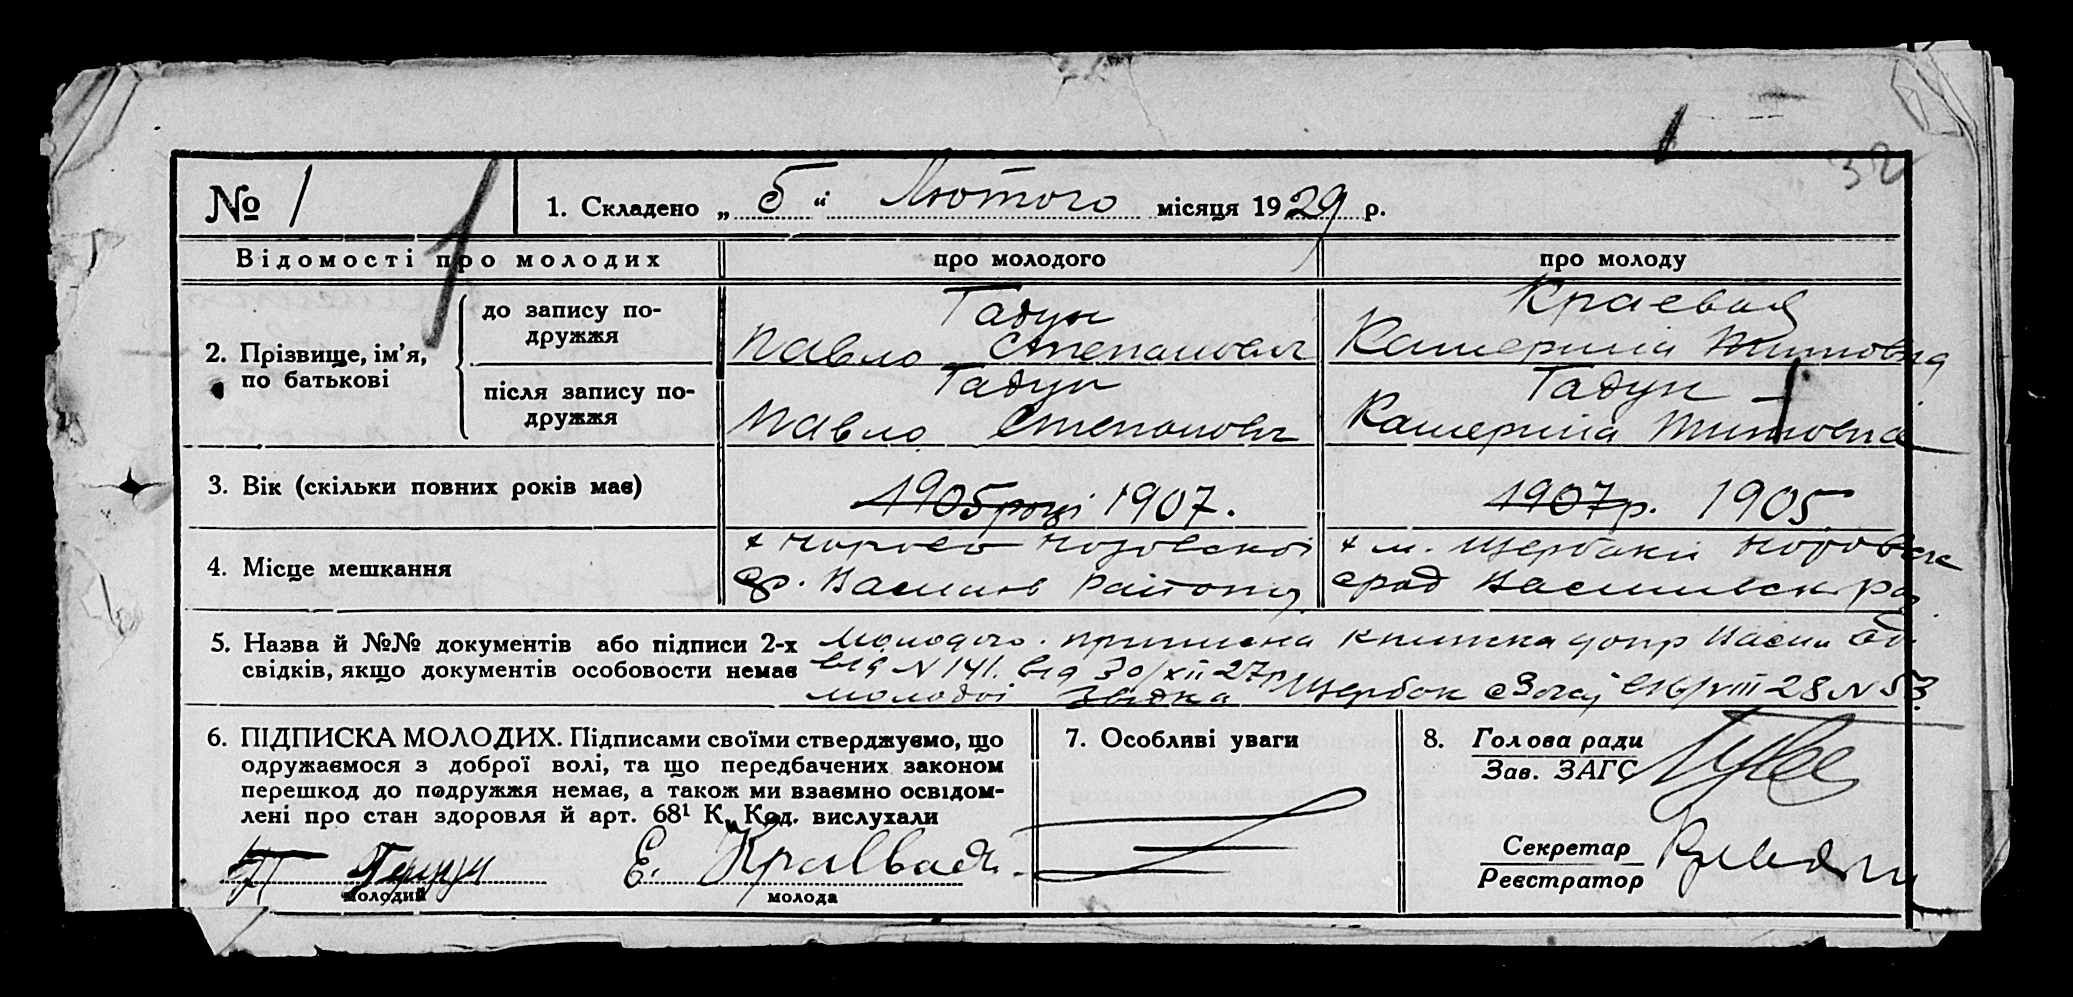 32
№ 1
1. Складено „ 5 “ Лютого місяця 1929 р.
Відомості про молодих
про молодого
про молоду
2. Прізвище, ім’я, по батькові
до запису подружжя
Гадун
Павло Степанович
Краевая
Катерина Титовна
після запису подружжя
Гадун
Павло Степанович
Гадун
Катерина Титовна
3. Вік (скільки повних років має)
1905 році 1907.
1907р. 1905
4. Місце мешкання
район
м. Щербаки
5. Назва й №№ документів або підписи 2-х
свідків, якщо документів особовости немає
Молодого. приписна книжка
N 141. від 30/XII 27р
молодої Звідка Щербак VIII 28 N 53
6. ПІДПИСКА МОЛОДИХ. Підписами своїми стверджуємо, що
одружаємося з доброї волі, та що передбачених законом
перешкод до подружжя немає, а також ми взаємно освідом-
лені про стан здоровля й арт. 68¹ К. Код. вислухали
Гадун
Е. Краевая
молодий
молода
7. Особливі уваги
8. Голова ради
Зав. ЗАГС
Секретар
Реєстратор